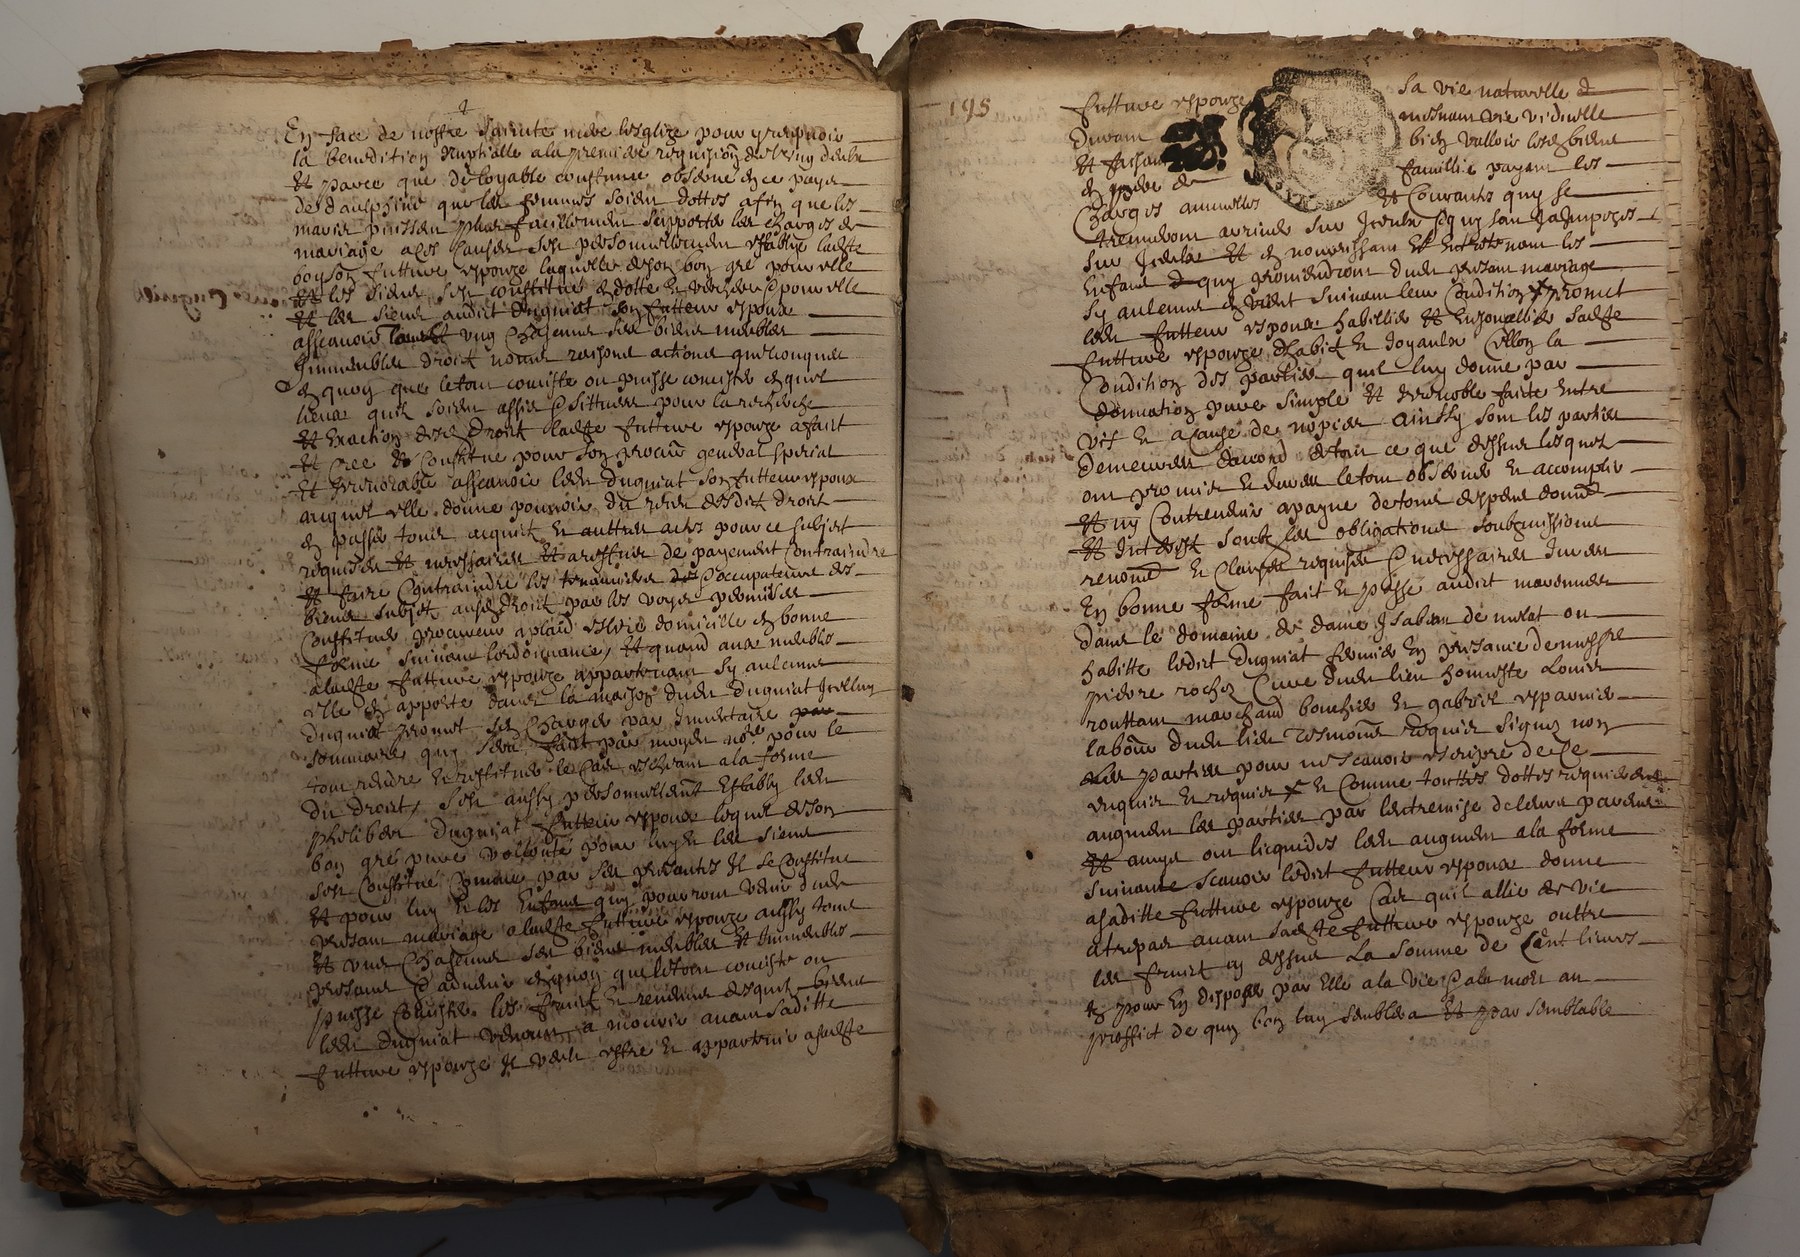 En face de nostre saincte mere lesglize pour y respndre
la benediction nuptialle a la premiere requision de lung deulx
Et parce que de loyable coustume observe en ce pays
de daulphiné que les femmes soient dottes afin que les
maris puissent plus facillement supporter les charges de
mariage a ces causes sest personnellement establye ladte
futture espouze laquelle de son bon gré pour elle
Et les siens sest constitué en dotte et verchere pour elle
Et les siens audict Duguiat son futteur espoux
asscavoir ung chascung ses biens meubles
Immeubles droict noms raisons actions quelconques
En quoy que le tout conciste ou puisse concister en quel
lieux quil soient assis & sittues pour la recherche
Et exaction desd droict ladte futture espouze a faict
Et cree et constitue pour son procur general special
Et Irrevocable asscavoir ledt Duguiat son futteur espoux
auquel elle donne pouvoir du retir desdict droict
En passer tous acquict et auttres actes pour ce subject
requises et necessaires et a reffus de payement contraindre
Et faire contraindre les tenantiers & occupateurs des
biens subject ausd droict par les voyes permises
Constituer procureur a plaid eslire domicille en bonne
forme suivant lordonnance, Et quand aux meubles
a ladte futture espouze appartenant sy aulcuns
elle en apporte dans la maison dudt Duguiat Icelluy
Duguiat promet sen charger par Inventaire
sommaire quy sera faict par moyen nore pour le
tout rendre et restituer le cas escheant a la forme
du droict, sest aussy personnellemt Estably ledt
Philibert Duguiat futteur espoux lequel de son
bon gré pure volonté pour luy et les siens
sest constitué comme par ses presantes Il se constitue
Et pour luy et les Enfans quy pourront venir dudt
presant mariage a ladte futture espouze aussy tous
Et ung chascung ses biens meubles et Immeubles
presans & advenir en quoy que le tout conciste ou
puisse concister les fruict et revenus desquels biens
ledt Duguiat venant a mourir avant saditte
futture espouze Il veult estre et appartenir a sadte
195
futture espouze sa vie naturelle et
Durant menant vie viduelle
Et faisant bien valloir lesd biens
En pere de famillie payant les
charges annuelles Et courantes quy se
treuveront arrivés sur Iceulx & quy sont Ja Imposés
sur Iceulx Et en nourrissant Et Entretenant les
Enfans quy proviendront dudt presant mariage
sy aulcungs En vient suivant leur condition & promet
ledt futteur espoux habillier Et Enjouallier sadte
futture espouze dhabict et Joyaulx sellon la
condition des parties quil luy donne par
donnation pure simple Et Irrevocable faicte Entre
vifs et a cause de nopces ainssy sont les parties
demeurees daccord de tout ce que dessus lesquels
ont promis et juré le tout observer et accomplir
Et ny contrevenir a payne de tous despens domes
Et Interest soubz les obligations soubzmissions
renond et clauses requises & necessaires Jures
En bonne forme faict et passe audict marennes
dans le domaine de dame Isabeau de murat ou
habitte ledict Duguiat fermier En presance de messre
Pierre rochas cure dudt lieu honneste Louis
routtant marchand boucher et gabriel esparvier
labour dudt lieu tesmoins requis signes non
les parties pour ne scavoir escripre de ce
enquis et requis & comme touttes dottes requiert
augment les parties par lentremise de leurs parens
Et amys ont licquides ledt augment a la forme
suivante scavoir ledict futteur espoux donne
a saditte futture espouze cas quil allie de vie
a trepas avant sadte futture espouze outtre
les fruict cy dessus La somme de Cent livres
Et pour En disposer par Elle a la vie & a la mort au
proffict de quy bon luy semblera Et par semblable